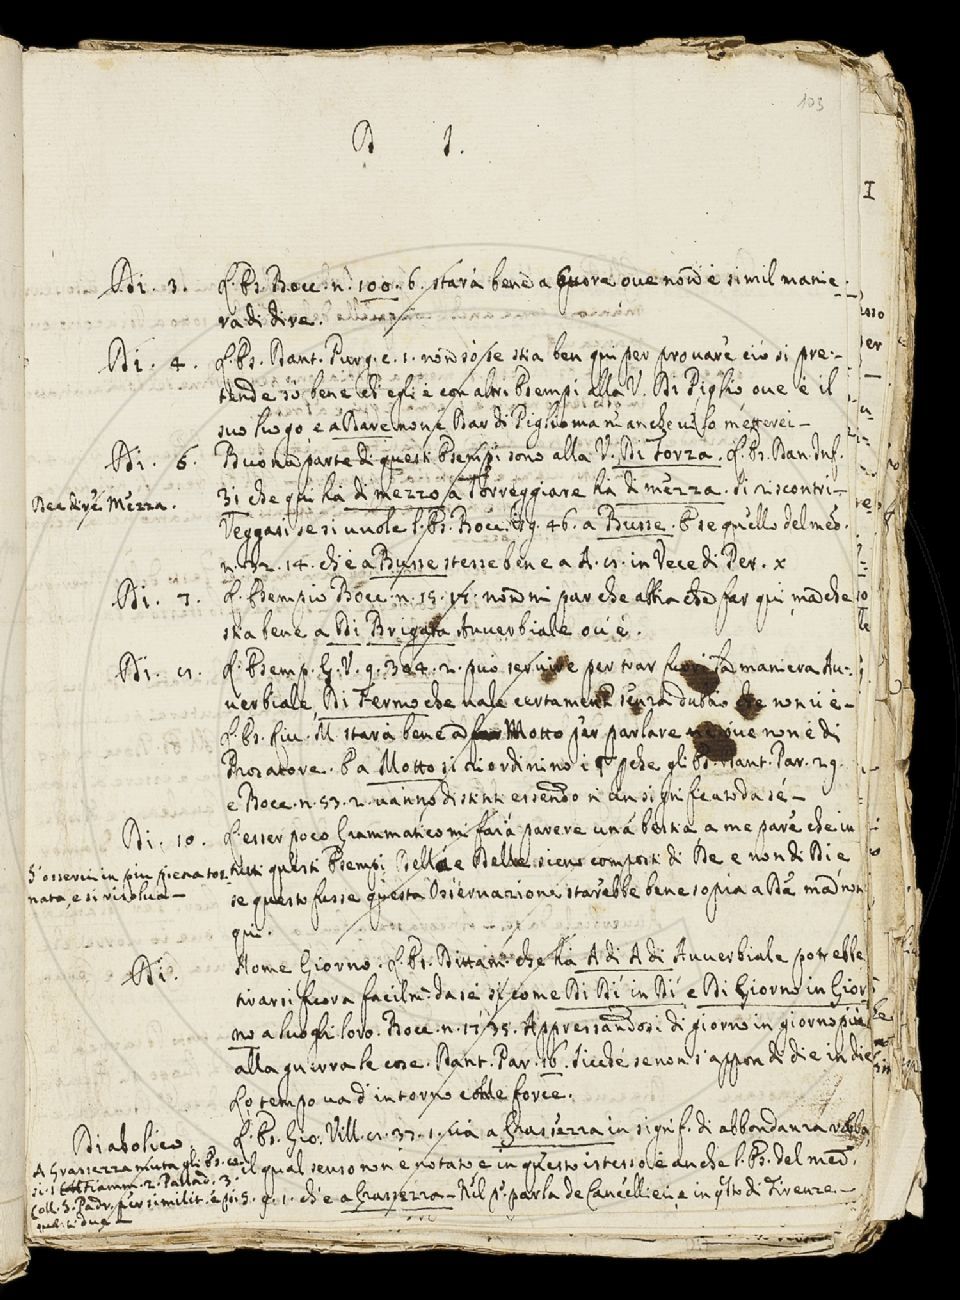 103
D I.
I
Di. 3. L'Es. Bocc. n. 100. 6. starà bene a Cuore ove non è simil manie-
ra di dire.
Di. 4. L'Es. Dant. Purg. c. 1. non so se stia ben qui per provare ciò si pre-
tende so bene ch'egli è con altri Esempi alla V. Di Piglio, ove è il
suo luogo, e a Dare non è Dar di Piglio ma anche vi si metterei-
Di. 6. Buona parte di questi Esempi sono alla V. Di Forza. L'Es. Dan. Inf.
31 che qui ha di mezzo, a Torreggiare ha di mezza. si riscontri-
Dee dire Mezza.
Veggasi se si vuole l'Es. Bocc. g. 46. a Busse. E se quello del med.
n. 32. 14. ch'è a Busse stesse bene a A. 9. in Vece di Per. x
Di. 7. L'Esempio Bocc. n. 15. non mi par che abbia che far qui, ma che
stia bene a Di Brigata Avverbiale ov'è.
Di. 9. L'Esemp. G. V. 2. può servire per trar fuori la maniera Av-
verbiale, Di Fermo che vale certamente senza dubbio che non vi è-
L'Es. Liv. M. starà bene a Motto per parlare ove non è di
Prosatore. E a Motto si riordinino i pche gli Es. Dant. Par. 29.
e Bocc. n. 53. 2. vanno distinti essendo di un significato da sè-
Di. 10. L'esser poco Grammatico mi farà parere una bestia a me pare che in
tutti questi Esempi Della e Delle sieno composti di De e non di Di e
S'osservi in più piena tor-
nata, e si risolva-
se questo fusse questa Osservazione starebbe bene sopra a Da, ma non
qui.
Di. Nome Giorno. L'Es. Dittam. che ha A di A di Avverbiale potrebbe
tirarsi fuora facilm. da sè sì come Di Dì in Dì, e Di Giorno in Gior-
no a luoghi loro. Bocc. n. 17. 35. Appressandosi di giorno in giorno più
alla guerra le cose. Dant. Par. 16. Sicchè se non s'appon di die in die
Lo tempo va d'intorno colle force.
Diabolico. L'Es. Gio. Vill. 9. 33. 1. sia a Grassezza in signif. di abbondanza robba,
il qual senso non è notato e in questo istesso è anche l'Es. del med.
A Grassezza muta gli Es.
5. 9. 1. ch'è a Grassezza- Nel p. parla de Cancellieri, e in q.sto di Firenze.-
Coll. S. Padr. per similit.